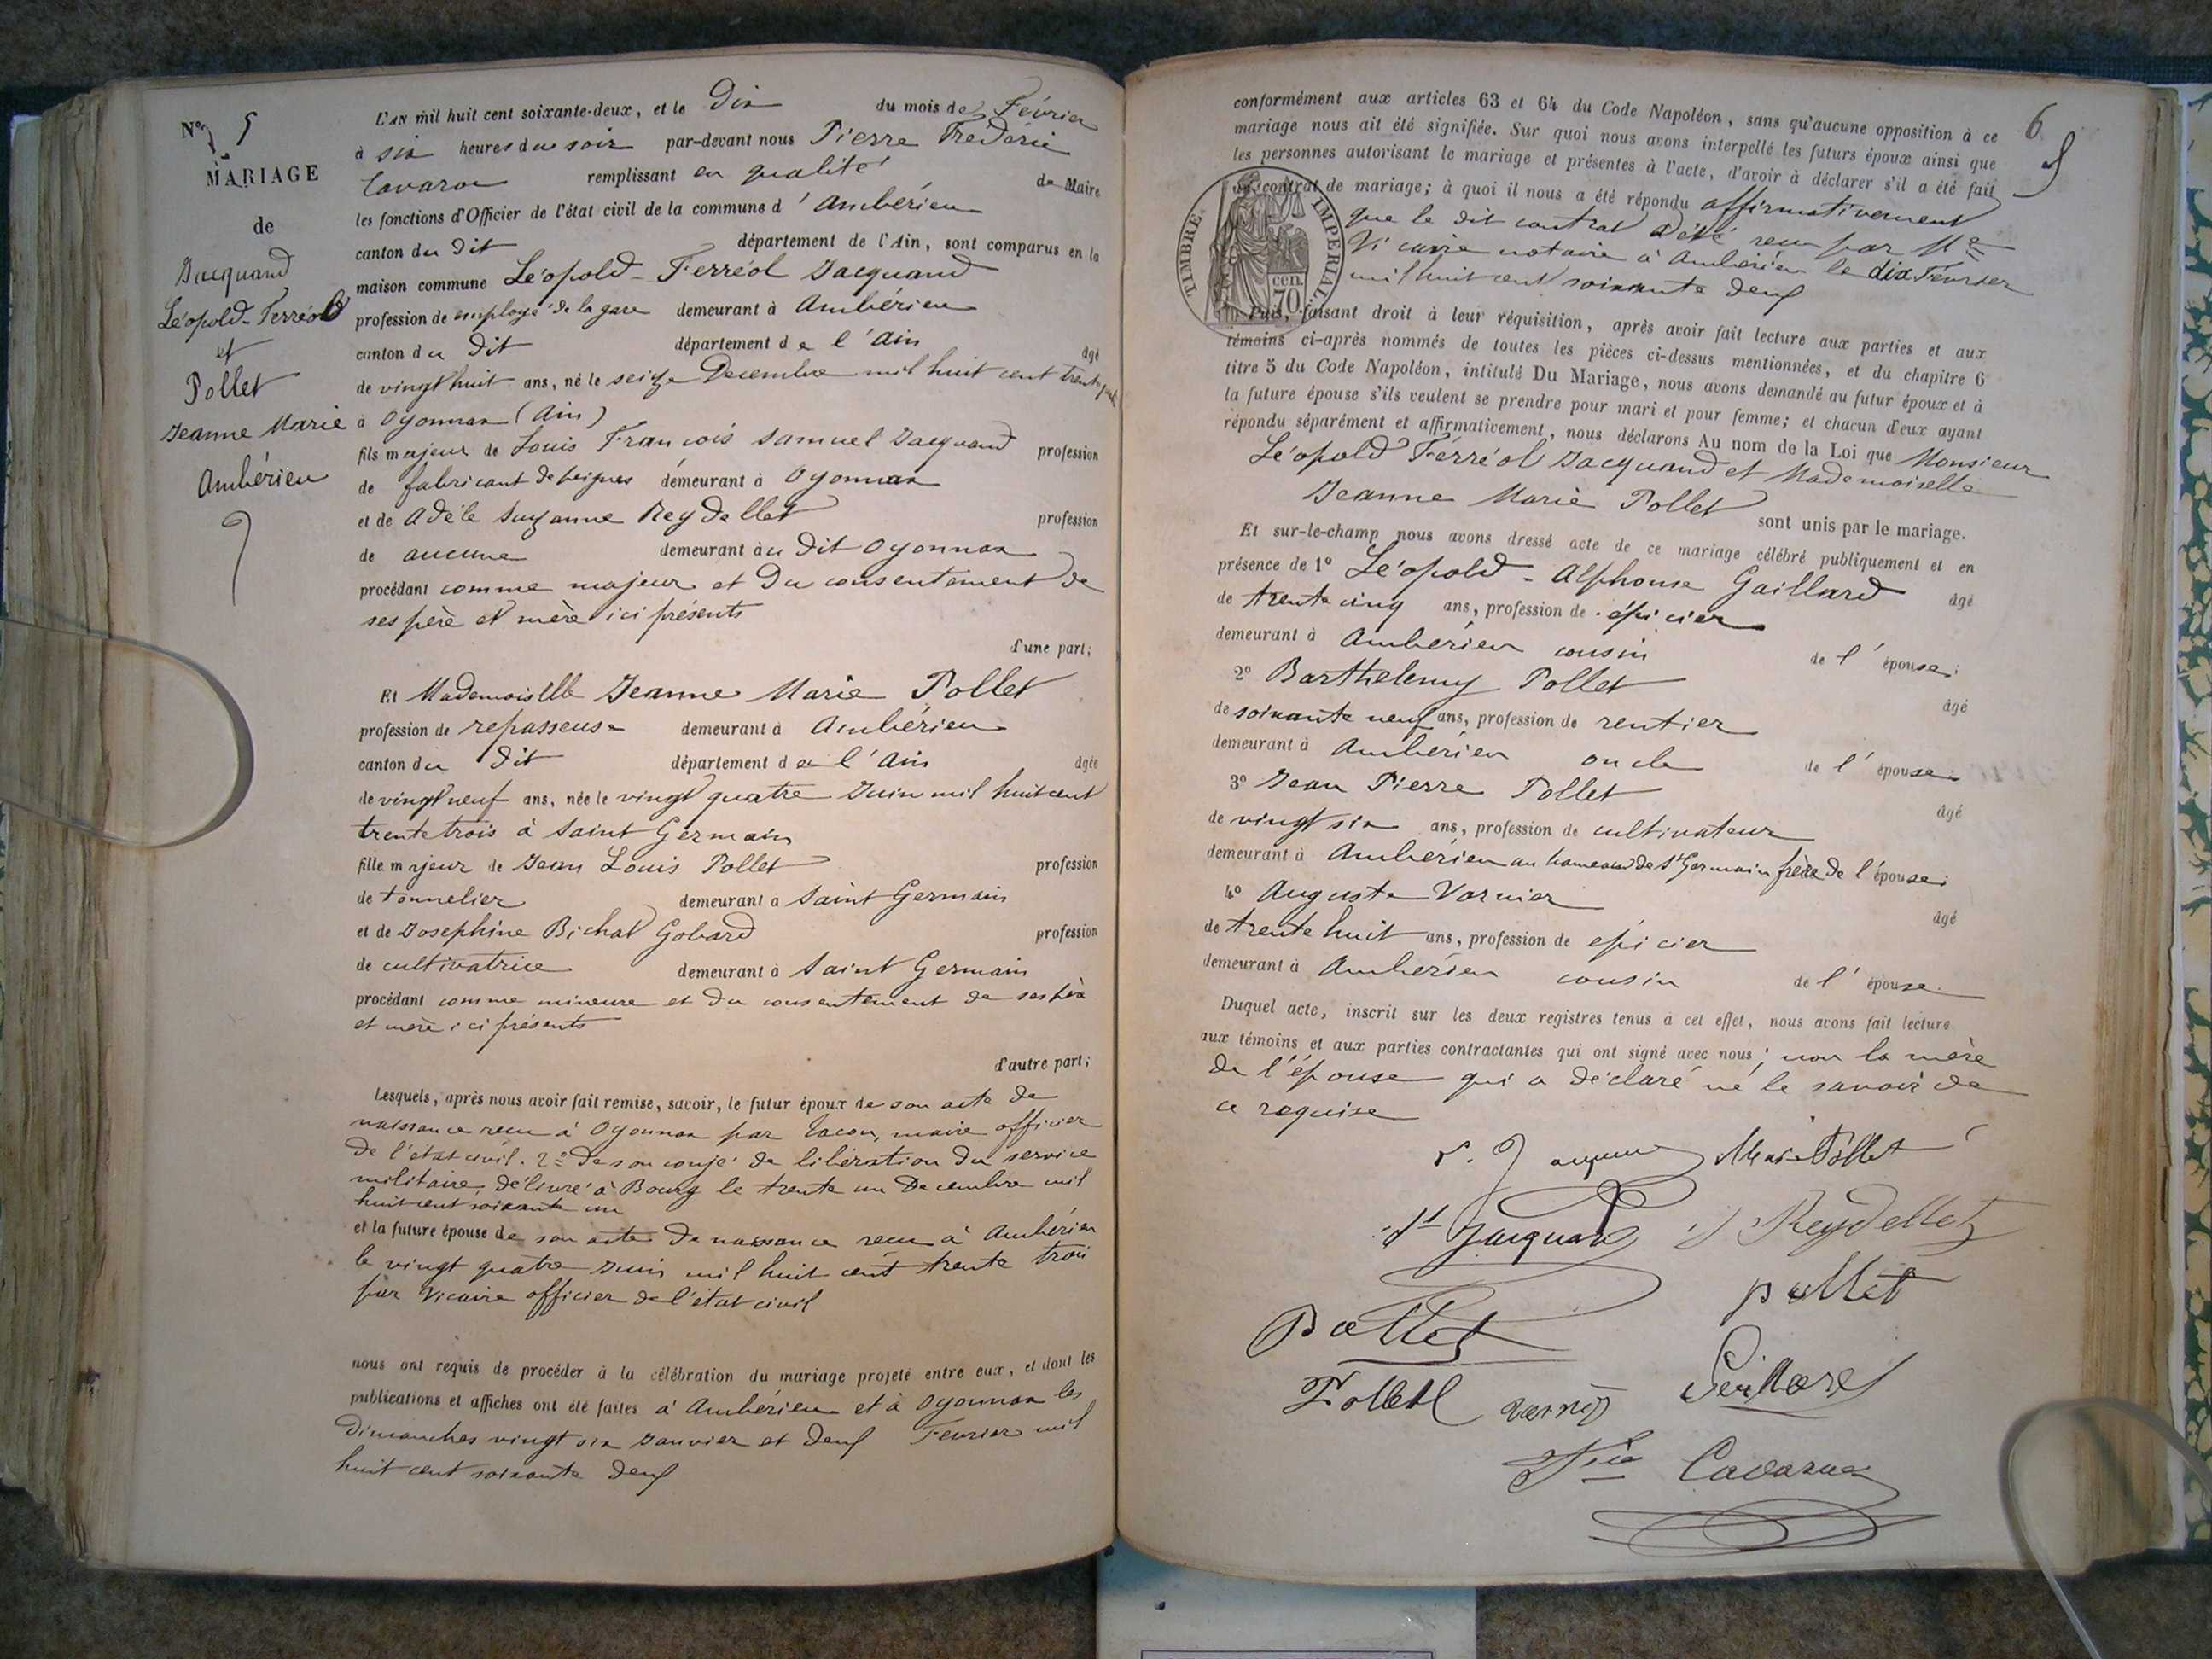 N° 5
MARIAGE
de
Jacquand
Léopold-Ferréol
et
Pollet
Jeanne Marie
Ambérieu
L'AN mil huit cent soixante-deux, et le Dix du mois de Février
à six heures du soir par-devant nous Pierre Frédéric
Cavaroc remplissant en qualité de Maire
les fonctions d'Officier de l'état civil de la commune d'Ambérieu
canton du dit département de l'Ain, sont comparus en la
maison commune Léopold-Ferréol Jacquand
profession de employé de la gare demeurant à Ambérieu
canton du dit département de l'Ain âgé
de vingt huit ans, né le seize Decembre mil huit cent trente
à Oyonnax (Ain)
fils majeur de Louis François Samuel Jacquand profession
de fabricant de peignes demeurant à Oyonnax
et de Adèle Suzanne Reydellet profession
de aucune demeurant au dit Oyonnax
procédant comme majeur et du consentement de
ses père et mère ici présents
d'une part;
Et Mademoiselle Jeanne Marie Pollet
profession de repasseuse demeurant à Ambérieu
canton du dit département de l'Ain âgée
de vingt neuf ans, née le vingt quatre Juin mil huit cent
trente trois à Saint Germain
fille majeur de Jean Louis Pollet profession
de tonnelier demeurant à Saint Germain
et de Josephine Bichat Gobard profession
de cultivatrice demeurant à Saint Germain
procédant comme mineure et du consentement de ses père
et mère ici présents
d'autre part;
Lesquels, après nous avoir fait remise, savoir, le futur époux de son acte de
naissance recu à Oyonnax par Tacon, maire officier
de l'état civil. 2° de son conje de libération du service
militaire délivré à Bourg le trente un Decembre mil
huit cent soixante un
et la future épouse de son acte de naissance recu à Ambérieu
le vingt quatre Juin mil huit cent trente trois
par Vicaire officier de l'état civil
nous ont requis de procéder à la célébration du mariage projeté entre eux, et dont les
publications et affiches ont été faites à Ambérieu et à Oyonnax les
Dimanches vingt six Janvier et deux Fevrier mil
huit cent soixante deux
6
conformément aux articles 63 et 64 du Code Napoléon, sans qu'aucune opposition à ce
mariage nous ait été signifiée. Sur quoi nous avons interpellé les futurs époux ainsi que
les personnes autorisant le mariage et présentes à l'acte, d'avoir à déclarer s'il a été fait
un contrat de mariage; à quoi il nous a été répondu affirmativement
que le dit contrat a été recu par Me
Vicaire notaire à Ambérieu le dix Fevrier
mil huit cent soixante deux
TIMBRE IMPERIAL
70 cen.
Puis, faisant droit à leur réquisition, après avoir fait lecture aux parties et aux
témoins ci-après nommés de toutes les pièces ci-dessus mentionnées, et du chapitre 6
titre 5 du Code Napoléon, intitulé Du Mariage, nous avons demandé au futur époux et à
la future épouse s'ils veulent se prendre pour mari et pour femme; et chacun d'eux ayant
répondu séparément et affirmativement, nous déclarons Au nom de la Loi que Monsieur
Léopold Férréol Jacquand et Mademoiselle
Jeanne Marie Pollet sont unis par le mariage.
Et sur-le-champ nous avons dressé acte de ce mariage célébré publiquement et en
présence de 1° Léopold-Alphonse Gaillard âgé
de trente cinq ans, profession de épicier
demeurant à Ambérieu cousin de l'épouse;
2° Barthelemy Pollet âgé
de soixante neuf ans, profession de rentier
demeurant à Ambérieu oncle de l'épouse;
3° Jean Pierre Pollet âgé
de vingt six ans, profession de cultivateur
demeurant à Ambérieu au hameau de St Germain frère de l'épouse;
4° Auguste Varnier âgé
de trente huit ans, profession de epicier
demeurant à Ambérieu cousin de l'épouse.
Duquel acte, inscrit sur les deux registres tenus à cet effet, nous avons fait lecture
aux témoins et aux parties contractantes qui ont signé avec nous; non la mère
de l'épouse qui a déclaré ne le savoir de
ce requise
Marie Pollet
Jacquand Reydellet
Pollet pollet
Pollet Varnier Gaillard
Cavaroc